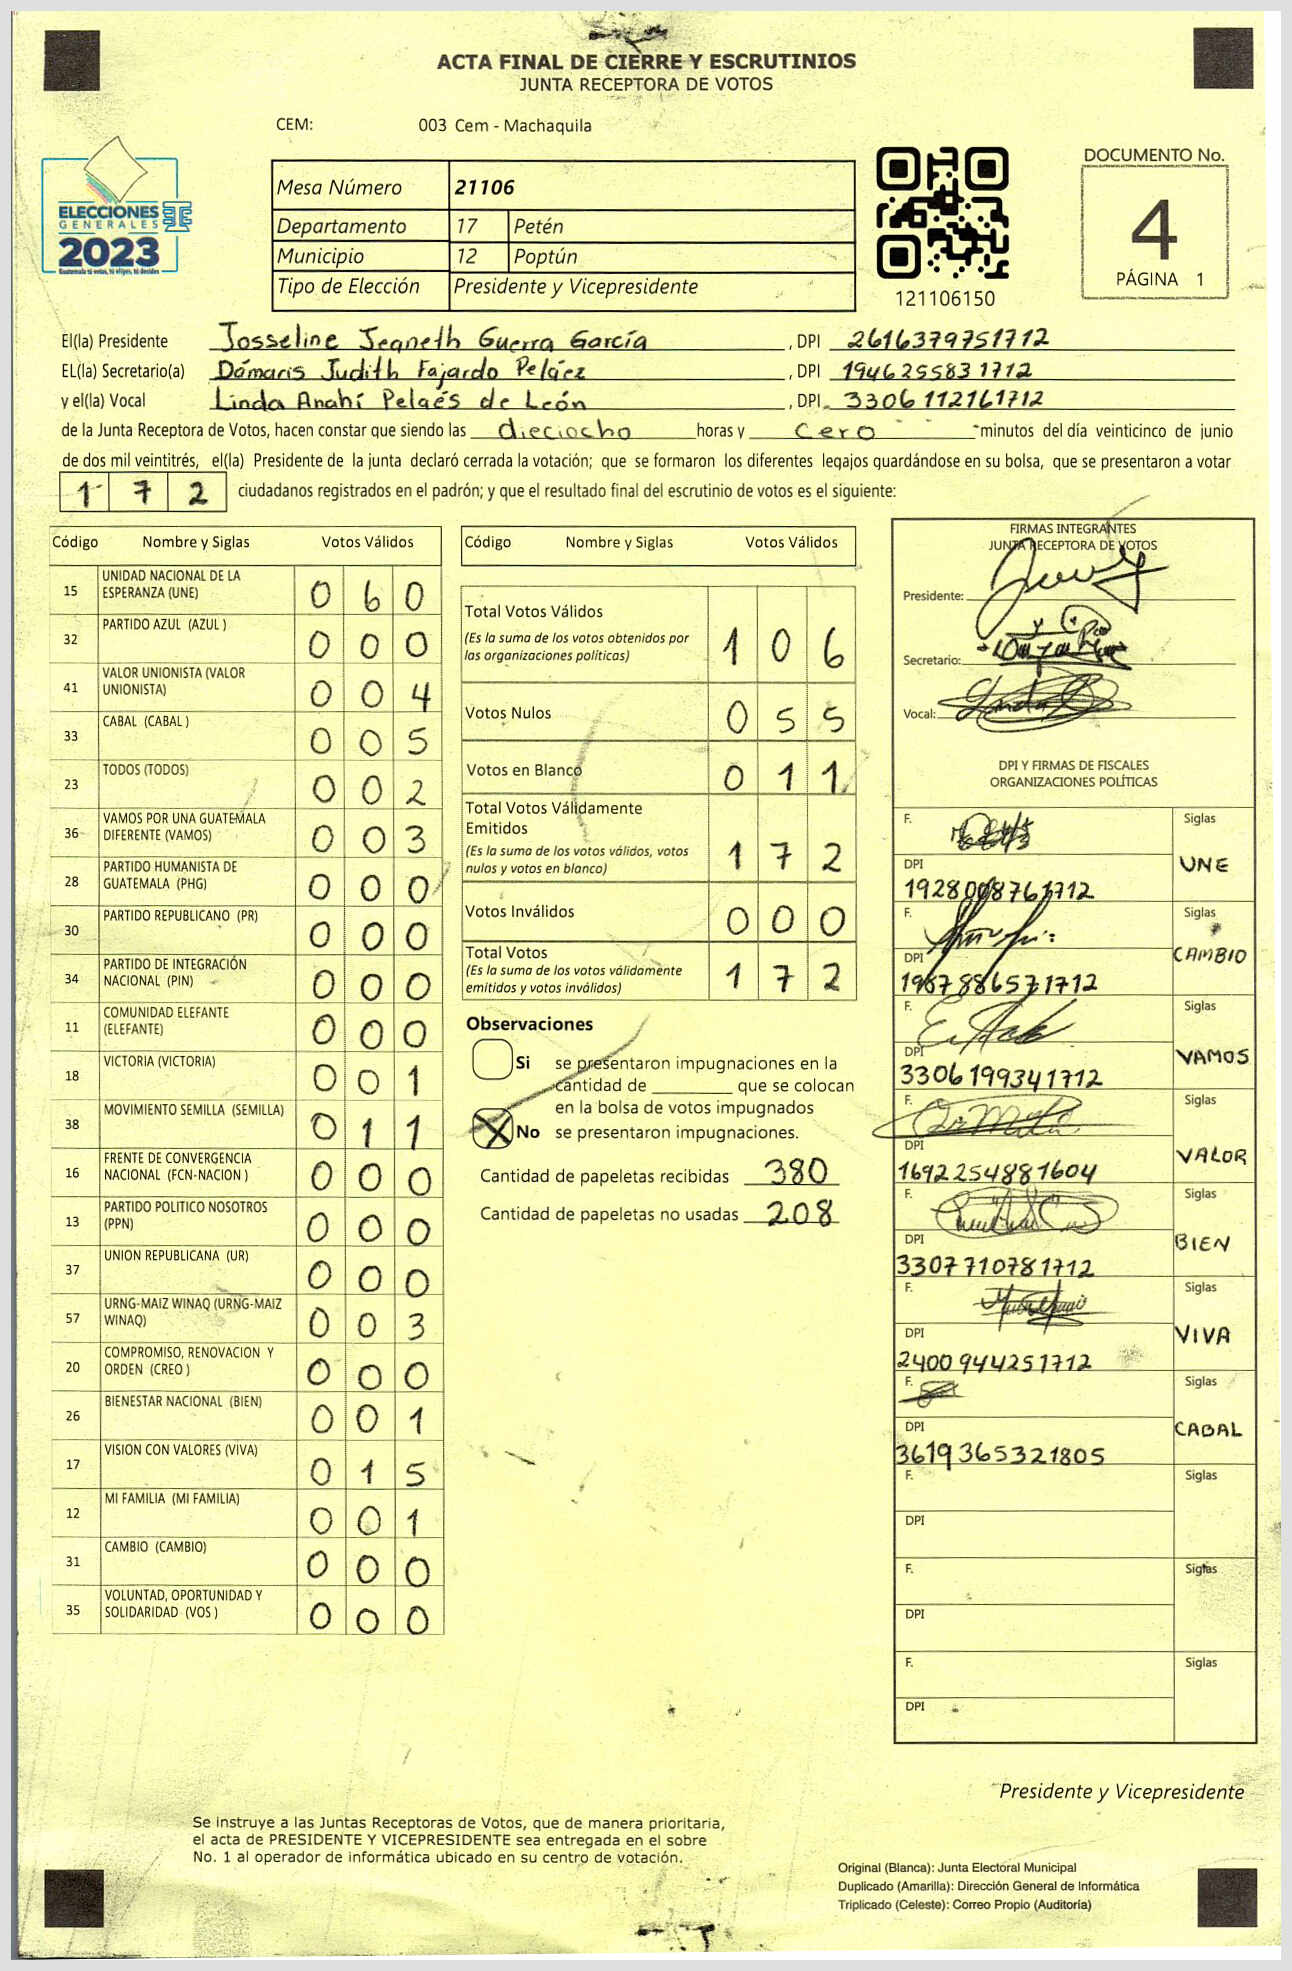 ACTA FINAL DE CIERRE Y ESCRUTINIOS
JUNTA RECEPTORA DE VOTOS
CEM: 003 Cem - Machaquila
ELECCIONES
GENERALES
2023
Guatemala tú votas, tú eliges, tú decides
Mesa Número 21106
Departamento 17 Petén
Municipio 12 Poptún
Tipo de Elección Presidente y Vicepresidente
121106150
DOCUMENTO No.
4
PÁGINA 1
El(la) Presidente Josseline Jeaneth Guerra García , DPI 2616379751712
EL(la) Secretario(a) Dámaris Judith Fajardo Peláez , DPI 1946255831712
y el(la) Vocal Linda Anahí Pelaés de León , DPI 3306112161712
de la Junta Receptora de Votos, hacen constar que siendo las dieciocho horas y cero minutos del día veinticinco de junio
de dos mil veintitrés, el(la) Presidente de la junta declaró cerrada la votación; que se formaron los diferentes legajos guardándose en su bolsa, que se presentaron a votar
1 7 2 ciudadanos registrados en el padrón; y que el resultado final del escrutinio de votos es el siguiente:
Código Nombre y Siglas Votos Válidos
15 UNIDAD NACIONAL DE LA ESPERANZA (UNE) 0 6 0
32 PARTIDO AZUL (AZUL ) 0 0 0
41 VALOR UNIONISTA (VALOR UNIONISTA) 0 0 4
33 CABAL (CABAL ) 0 0 5
23 TODOS (TODOS) 0 0 2
36 VAMOS POR UNA GUATEMALA DIFERENTE (VAMOS) 0 0 3
28 PARTIDO HUMANISTA DE GUATEMALA (PHG) 0 0 0
30 PARTIDO REPUBLICANO (PR) 0 0 0
34 PARTIDO DE INTEGRACIÓN NACIONAL (PIN) 0 0 0
11 COMUNIDAD ELEFANTE (ELEFANTE) 0 0 0
18 VICTORIA (VICTORIA) 0 0 1
38 MOVIMIENTO SEMILLA (SEMILLA) 0 1 1
16 FRENTE DE CONVERGENCIA NACIONAL (FCN-NACION ) 0 0 0
13 PARTIDO POLITICO NOSOTROS (PPN) 0 0 0
37 UNION REPUBLICANA (UR) 0 0 0
57 URNG-MAIZ WINAQ (URNG-MAIZ WINAQ) 0 0 3
20 COMPROMISO, RENOVACION Y ORDEN (CREO ) 0 0 0
26 BIENESTAR NACIONAL (BIEN) 0 0 1
17 VISION CON VALORES (VIVA) 0 1 5
12 MI FAMILIA (MI FAMILIA) 0 0 1
31 CAMBIO (CAMBIO) 0 0 0
35 VOLUNTAD, OPORTUNIDAD Y SOLIDARIDAD (VOS ) 0 0 0
Código Nombre y Siglas Votos Válidos
Total Votos Válidos
(Es la suma de los votos obtenidos por
las organizaciones políticas) 1 0 6
Votos Nulos 0 5 5
Votos en Blanco 0 1 1
Total Votos Válidamente
Emitidos
(Es la suma de los votos válidos, votos
nulos y votos en blanco) 1 7 2
Votos Inválidos 0 0 0
Total Votos
(Es la suma de los votos válidamente
emitidos y votos inválidos) 1 7 2
Observaciones
Si se presentaron impugnaciones en la
cantidad de ________ que se colocan
en la bolsa de votos impugnados
X No se presentaron impugnaciones.
Cantidad de papeletas recibidas 380
Cantidad de papeletas no usadas 208
FIRMAS INTEGRANTES
JUNTA RECEPTORA DE VOTOS
Presidente:
Secretario:
Vocal:
DPI Y FIRMAS DE FISCALES
ORGANIZACIONES POLÍTICAS
F. Siglas
DPI UNE
1928008761712
F. Siglas
DPI CAMBIO
1967886571712
F. Siglas
DPI VAMOS
3306199341712
F. Siglas
DPI VALOR
1692254881604
F. Siglas
DPI BIEN
3307710781712
F. Siglas
DPI VIVA
2400944251712
F. Siglas
DPI CABAL
3619365321805
F. Siglas
DPI
F. Siglas
DPI
F. Siglas
DPI
Presidente y Vicepresidente
Se instruye a las Juntas Receptoras de Votos, que de manera prioritaria,
el acta de PRESIDENTE Y VICEPRESIDENTE sea entregada en el sobre
No. 1 al operador de informática ubicado en su centro de votación.
Original (Blanca): Junta Electoral Municipal
Duplicado (Amarilla): Dirección General de Informática
Triplicado (Celeste): Correo Propio (Auditoría)